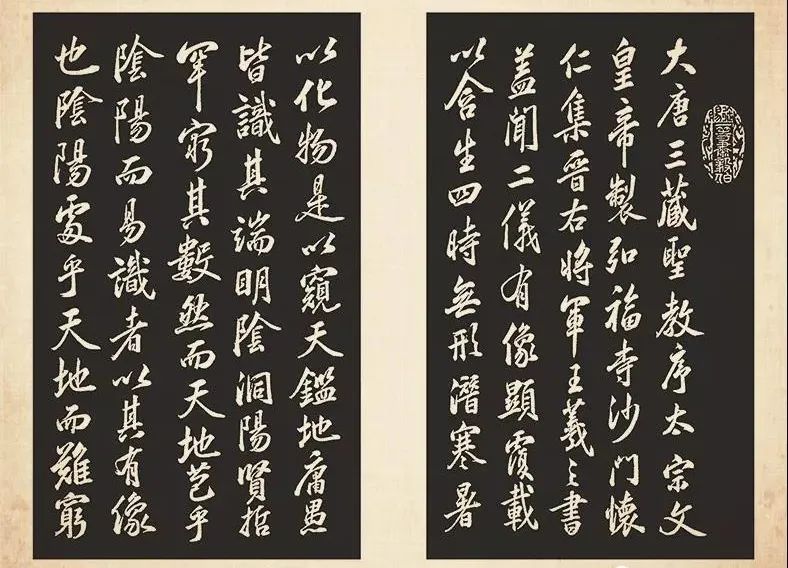 大唐三藏聖教序太宗文
皇帝製弘福寺沙門懷
仁集晋右將軍王羲之書
盖聞二儀有像顯覆載
以含生四時無形潛寒暑
以化物是以窺天鑑地庸愚
皆識其端明陰洞陽賢哲
罕窮其數然而天地苞乎
陰陽而易識者以其有像
也陰陽處乎天地而難窮